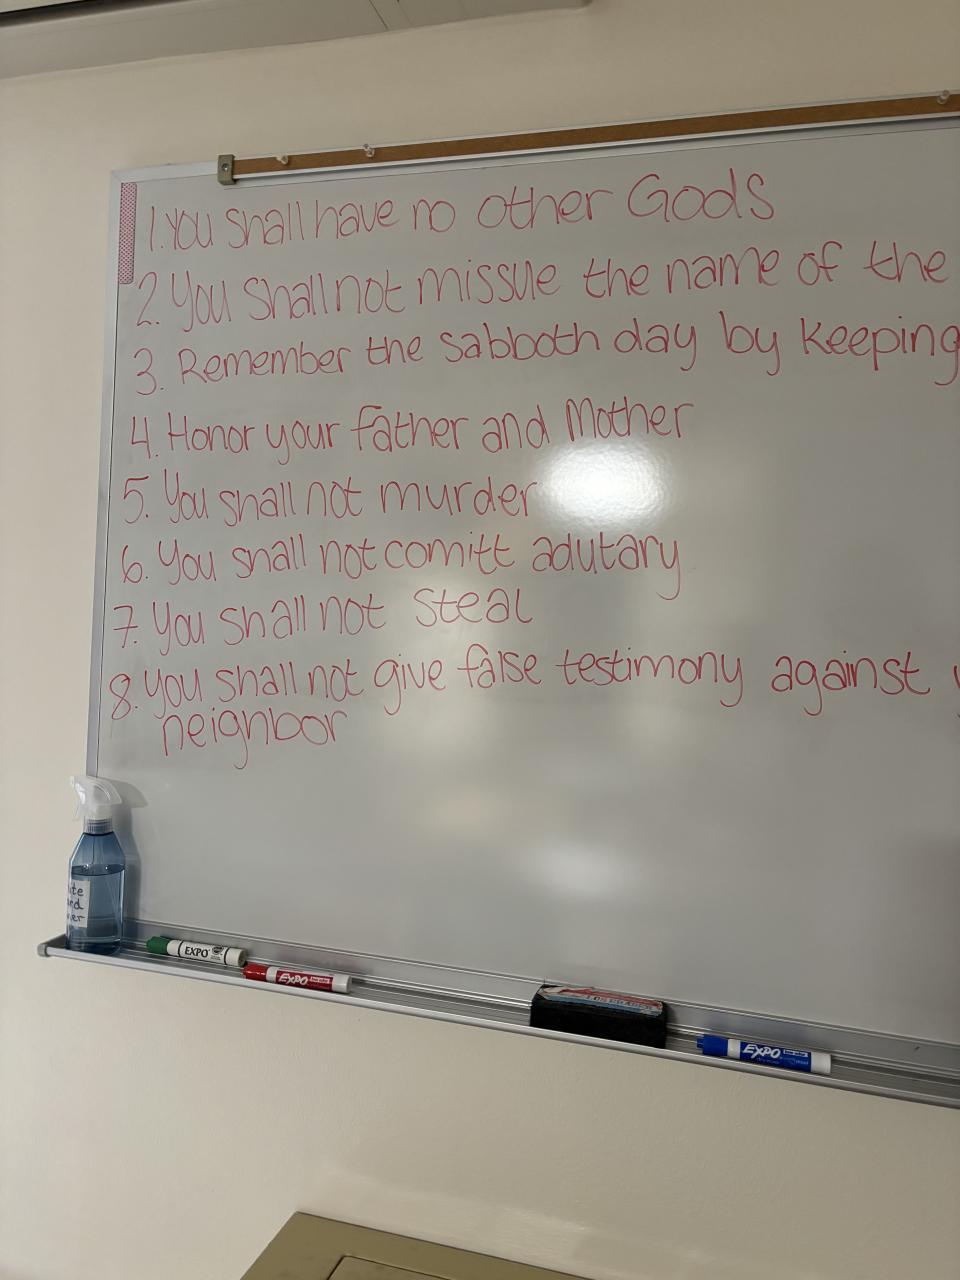 1. You shall have no other Gods
2. You shall not missue the name of the
3. Remember the sabboth day by keeping
4. Honor your father and Mother
5. You shall not murder
6. You shall not comitt adutary
7. You shall not steal
8. You shall not give false testimony against
neighbor
EXPO
EXPO
EXPO